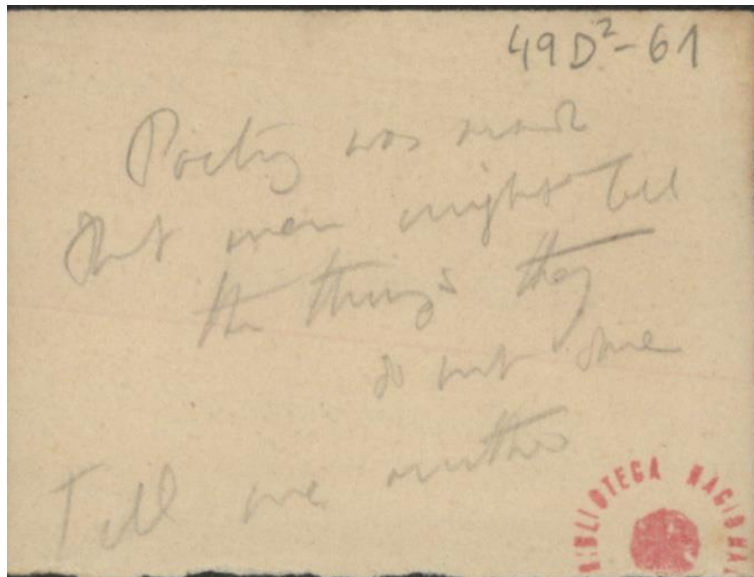 49D²-61
Poetry was made
that men might tell
the things they
do not dare
Tell one another
BIBLIOTECA NACIONAL